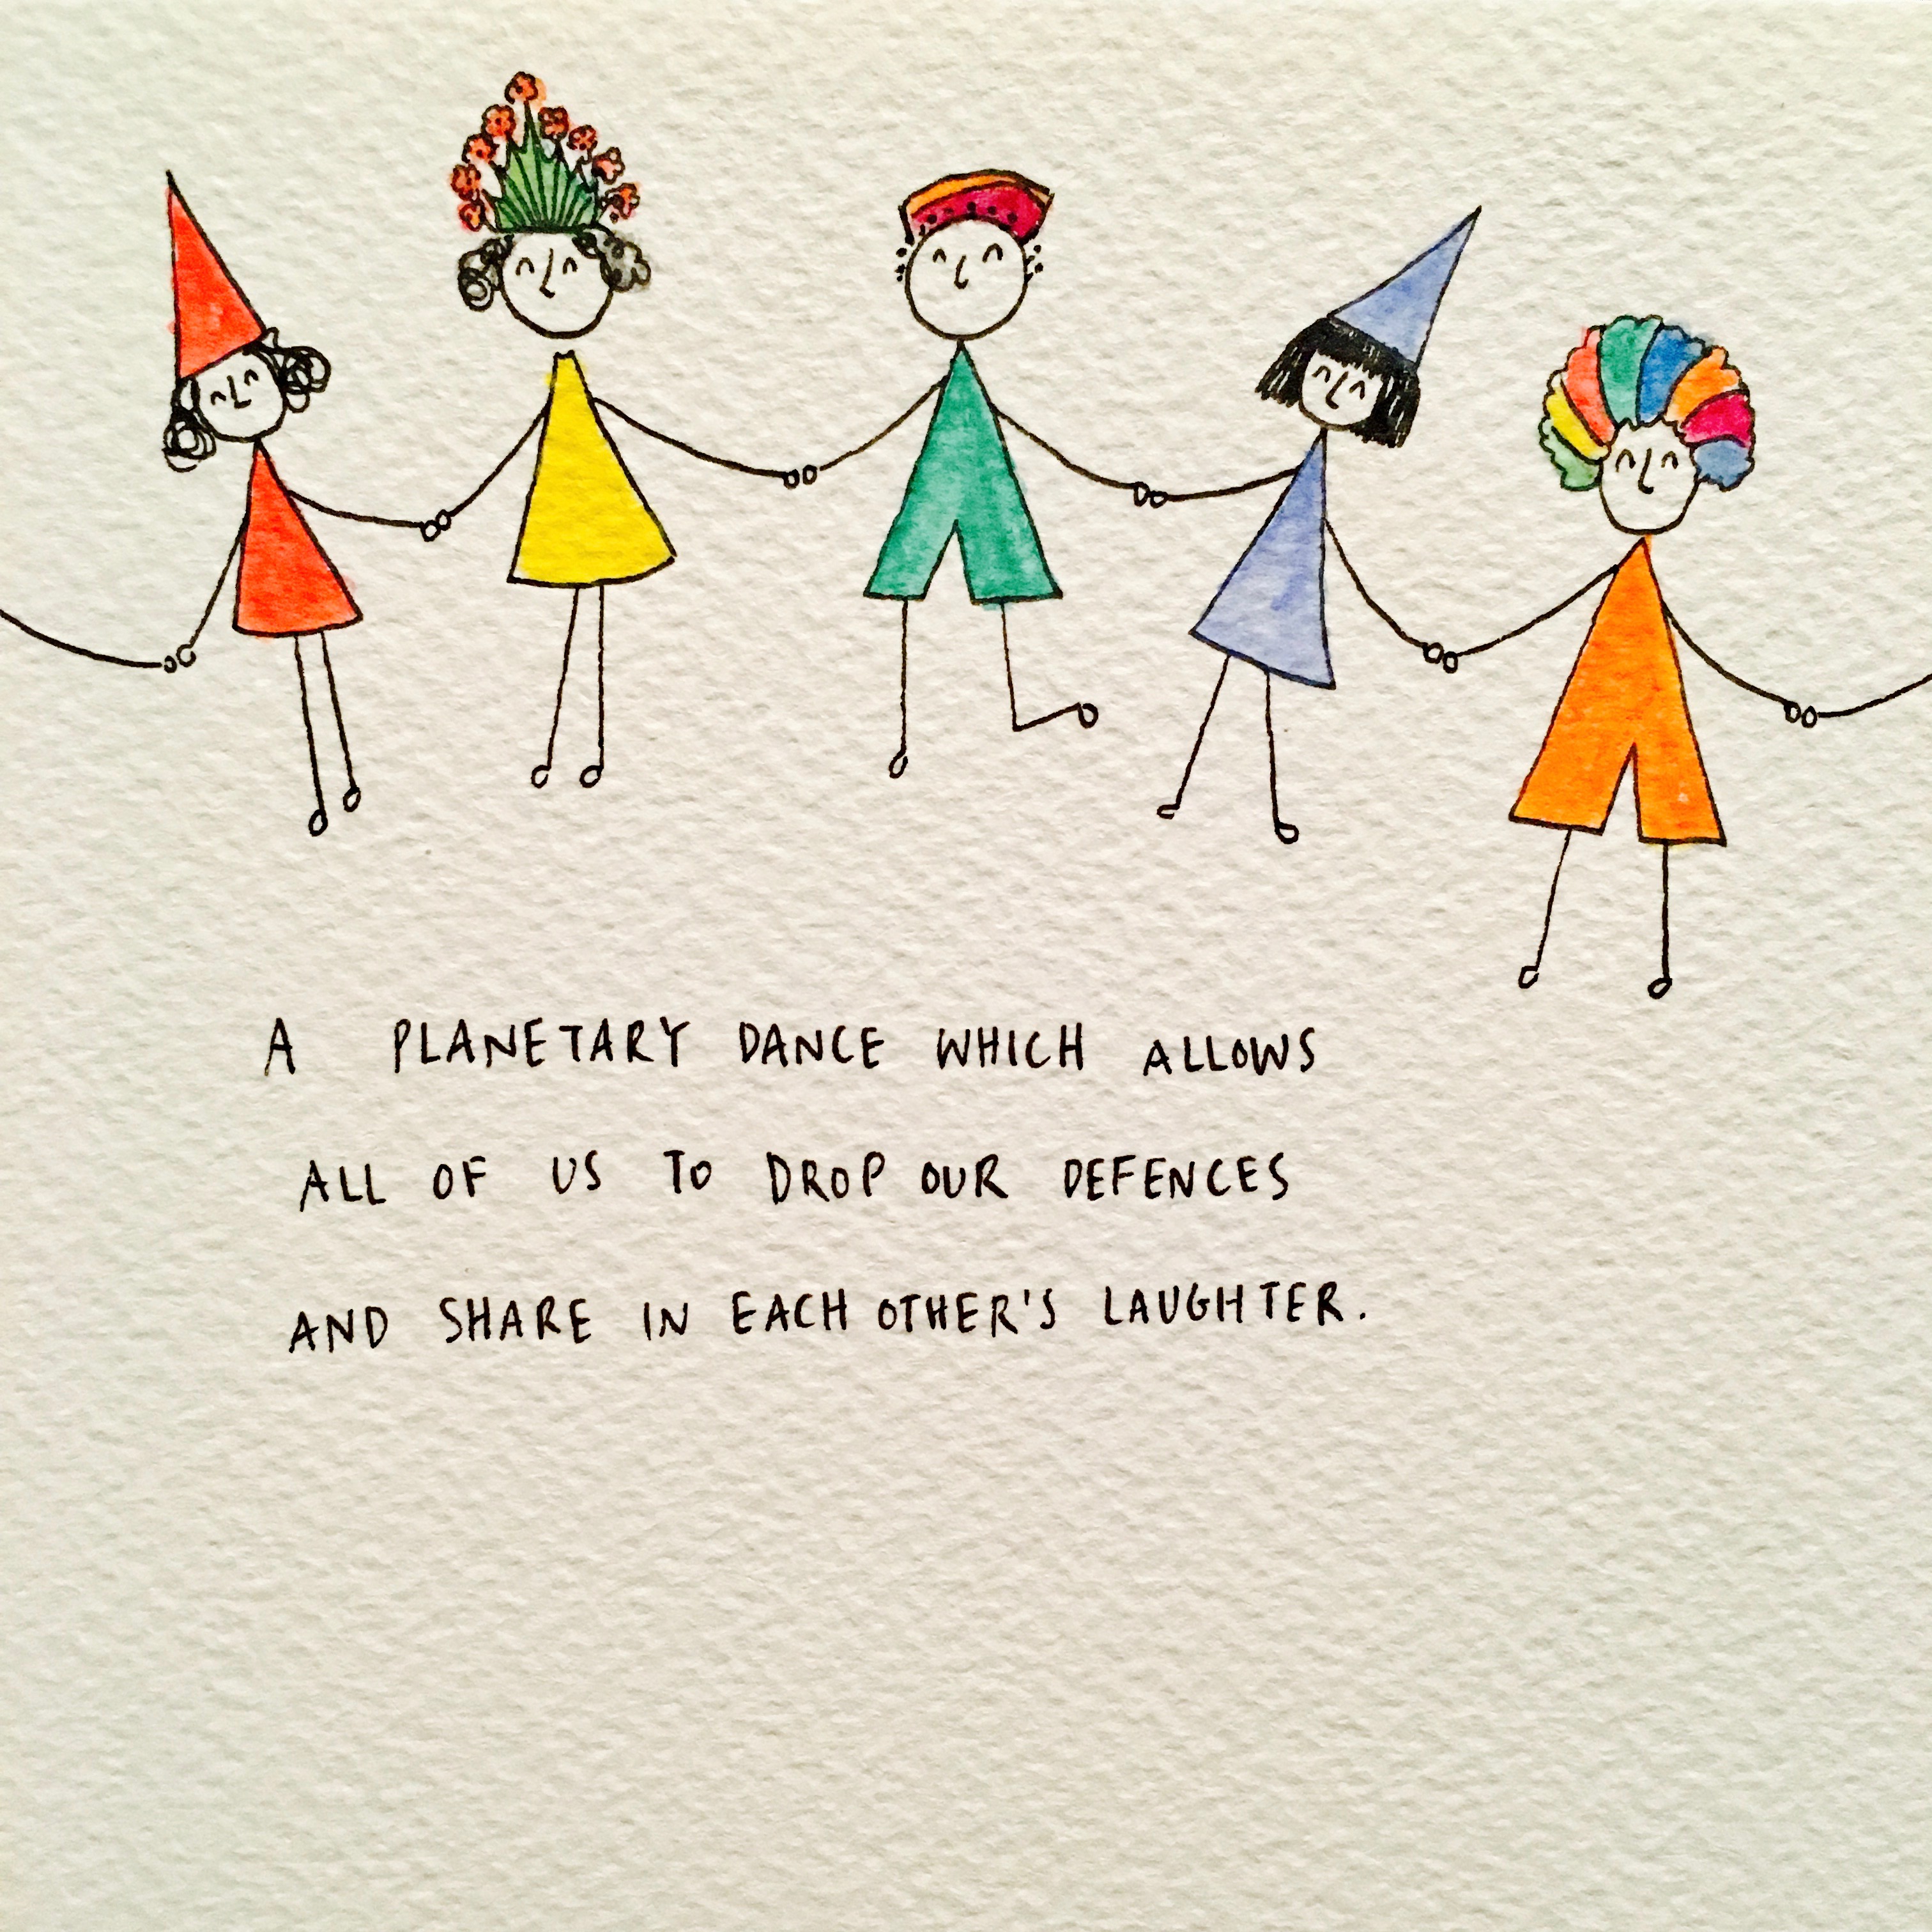 A PLANETARY DANCE WHICH ALLOWS
ALL OF US TO DROP OUR DEFENCES
AND SHARE IN EACH OTHER'S LAUGHTER.